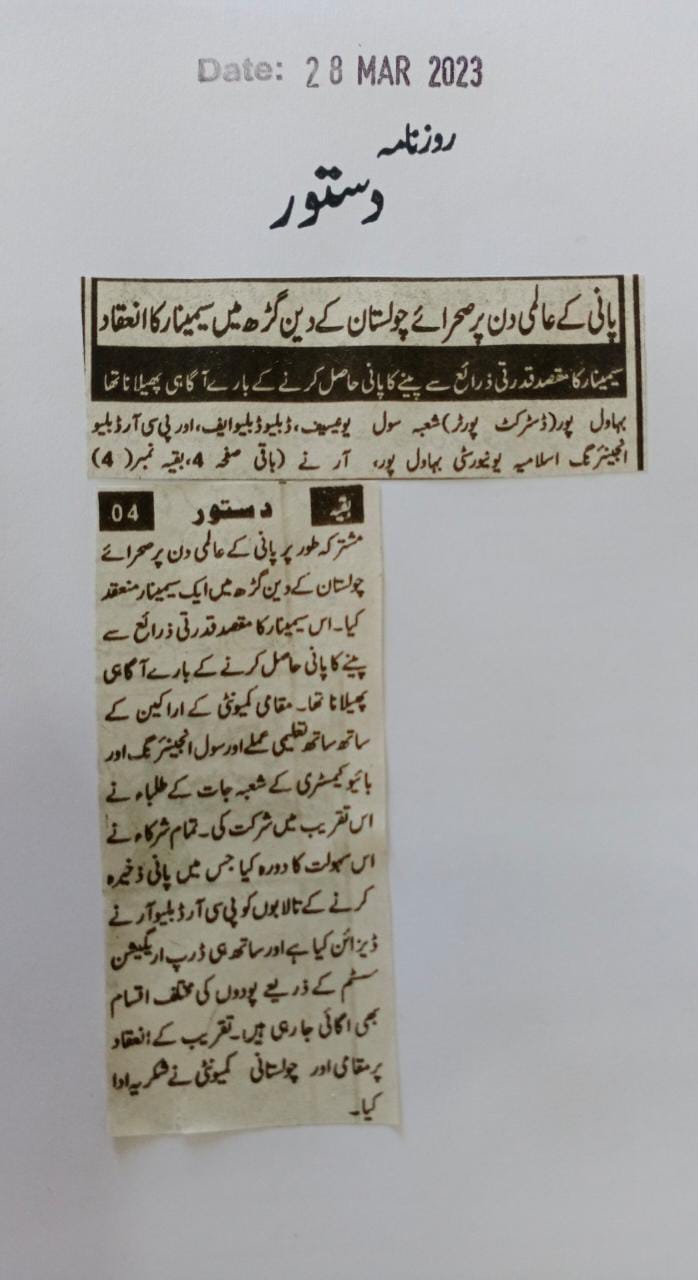 Date: 28 MAR 2023
روزنامہ
دستور
پانی کے عالمی دن پر صحرائے چولستان کے دین گڑھ میں سیمینار کا انعقاد
سیمینار کا مقصد قدرتی ذرائع سے پینے کا پانی حاصل کرنے کے بارے آگاہی پھیلانا تھا
بہاول پور(ڈسٹرکٹ پورٹر)شعبہ سول
انجینئرنگ اسلامیہ یونیورسٹی بہاول پور،
یونیسیف، ڈبلیو ڈبلیو ایف، اور پی سی آر ڈبلیو
آر نے (باقی صفحہ 4، بقیہ نمبر( 4)
بقیہ دستور 04
مشترکہ طور پر پانی کے عالمی دن پر صحرائے
چولستان کے دین گڑھ میں ایک سیمینار منعقد
کیا۔ اس سیمینار کا مقصد قدرتی ذرائع سے
پینے کا پانی حاصل کرنے کے بارے آگاہی
پھیلانا تھا۔ مقامی کمیونٹی کے اراکین کے
ساتھ ساتھ تعلیمی عملے اور سول انجینئرنگ اور
بائیو کیمسٹری کے شعبہ جات کے طلباء نے
اس تقریب میں شرکت کی۔ تمام شرکاء نے
اس سہولت کا دورہ کیا جس میں پانی ذخیرہ
کرنے کے تالابوں کو پی سی آر ڈبلیو آر نے
ڈیزائن کیا ہے اور ساتھ ہی ڈرپ اریگیشن
سسٹم کے ذریعے پودوں کی مختلف اقسام
بھی اگائی جا رہی ہیں۔ تقریب کے انعقاد
پر مقامی اور چولستانی کمیونٹی نے شکریہ ادا
کیا۔